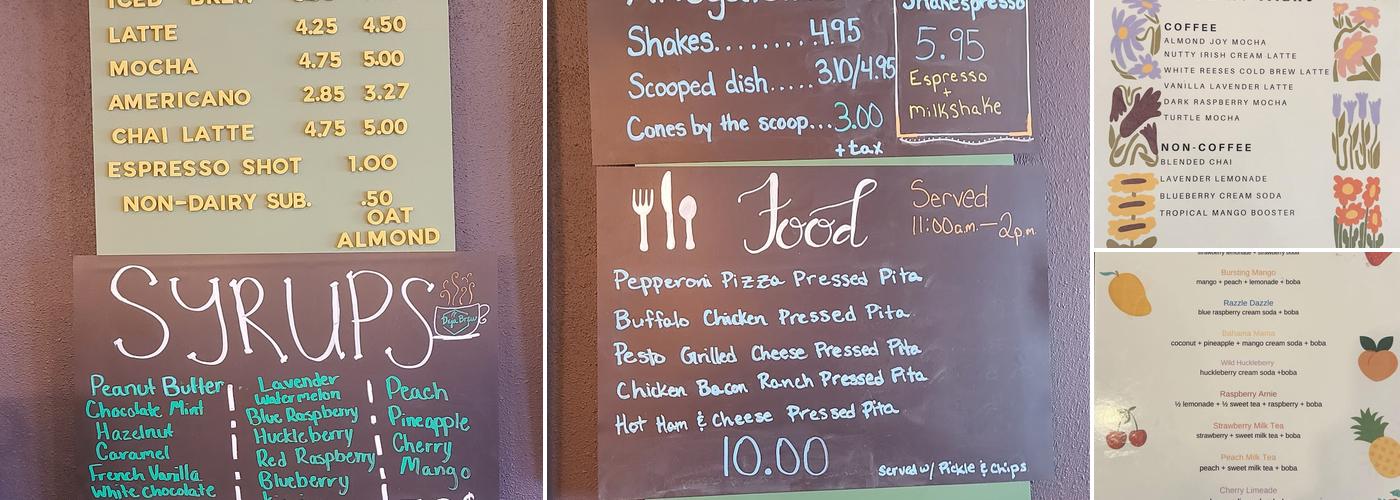 ICED BREW
LATTE 4.25 4.50
MOCHA 4.75 5.00
AMERICANO 2.85 3.27
CHAI LATTE 4.75 5.00
ESPRESSO SHOT 1.00
NON-DAIRY SUB. .50
OAT
ALMOND
SYRUPS
Deja Brew
Peanut Butter
Chocolate Mint
Hazelnut
Caramel
French Vanilla
White Chocolate
Lavender
Watermelon
Blue Raspberry
Huckleberry
Red Raspberry
Blueberry
Peach
Pineapple
Cherry
Mango
Shakes........4.95
Scooped dish.....3.10/4.95
Cones by the scoop...3.00
+tax
Shakespresso
5.95
Espresso
+
milkshake
Food
Served
11:00a.m.-2p.m.
Pepperoni Pizza Pressed Pita
Buffalo Chicken Pressed Pita
Pesto Grilled Cheese Pressed Pita
Chicken Bacon Ranch Pressed Pita
Hot Ham & Cheese Pressed Pita
10.00
Served w/ Pickle & Chips
COFFEE
ALMOND JOY MOCHA
NUTTY IRISH CREAM LATTE
WHITE REESES COLD BREW LATTE
VANILLA LAVENDER LATTE
DARK RASPBERRY MOCHA
TURTLE MOCHA
NON-COFFEE
BLENDED CHAI
LAVENDER LEMONADE
BLUEBERRY CREAM SODA
TROPICAL MANGO BOOSTER
strawberry lemonade + strawberry boba
Bursting Mango
mango + peach + lemonade + boba
Razzle Dazzle
blue raspberry cream soda + boba
Bahama Mama
coconut + pineapple + mango cream soda + boba
Wild Huckleberry
huckleberry cream soda +boba
Raspberry Arnie
½ lemonade + ½ sweet tea + raspberry + boba
Strawberry Milk Tea
strawberry + sweet milk tea + boba
Peach Milk Tea
peach + sweet milk tea + boba
Cherry Limeade